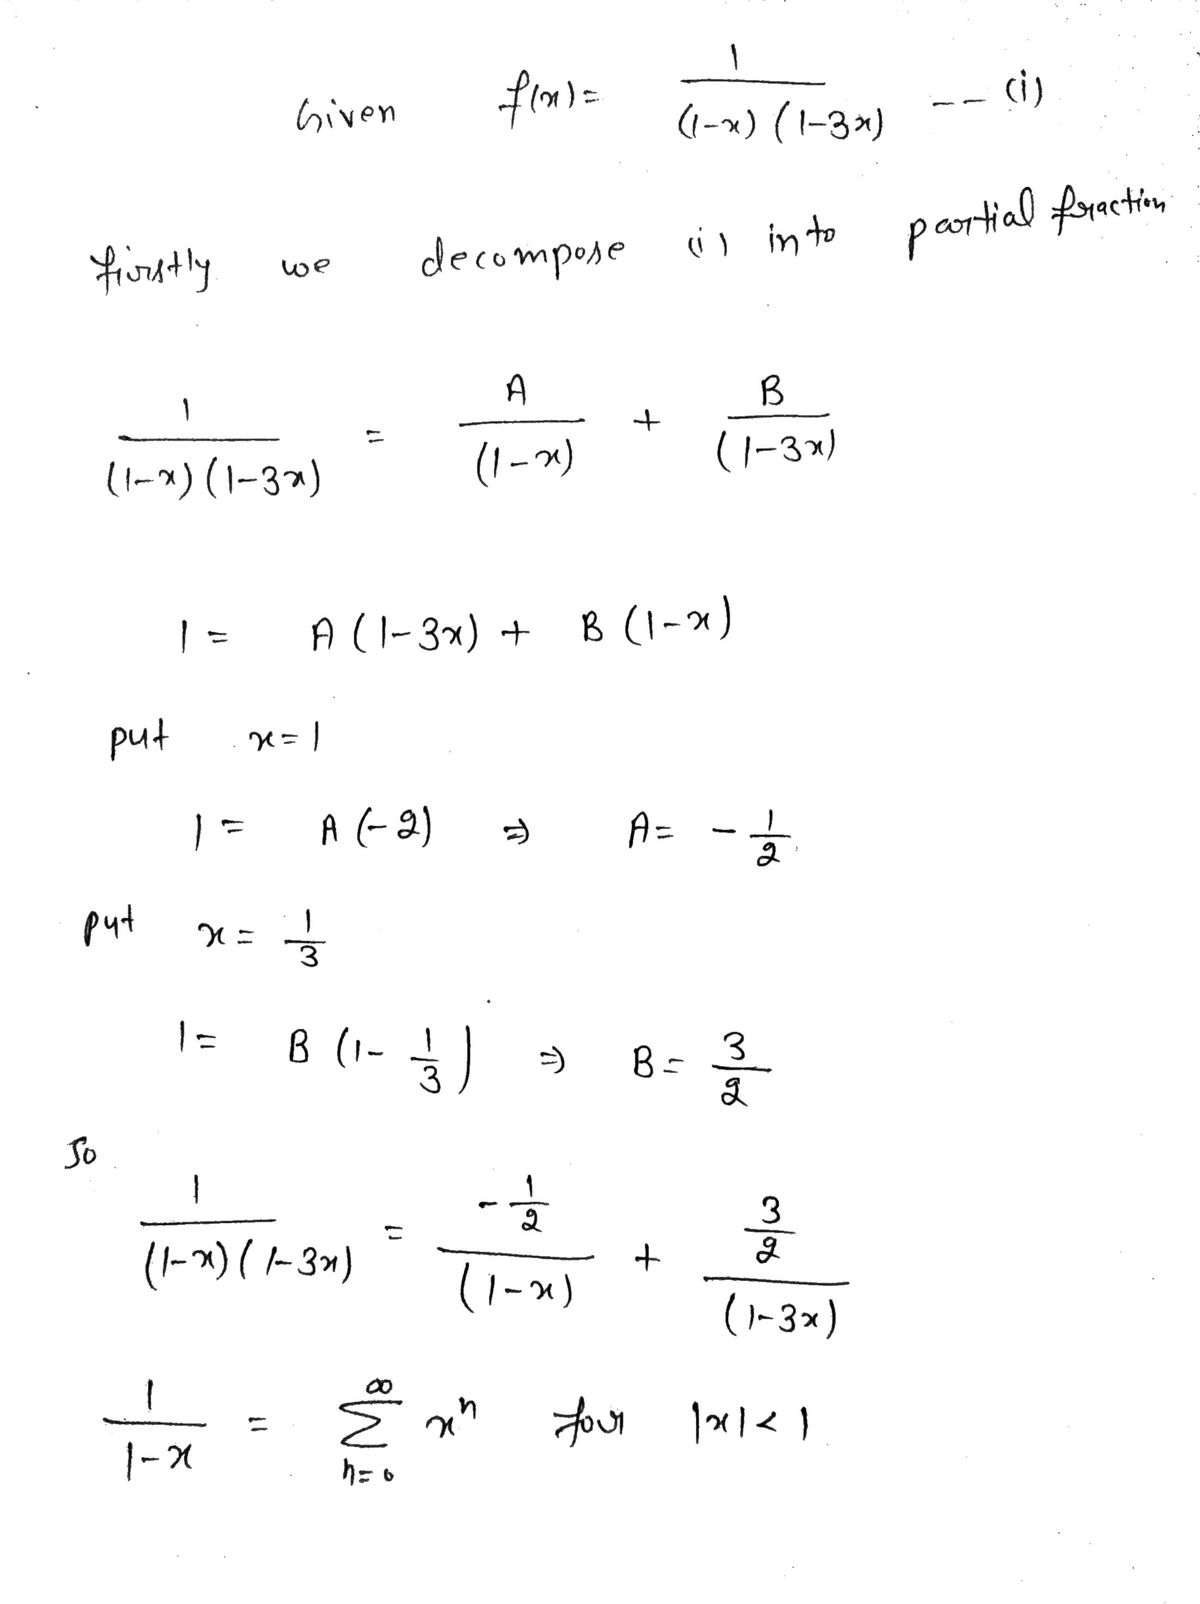 Given f(x) = 1/((1-x)(1-3x)) -- (i)
firstly we decompose (i) into partial fraction
1/((1-x)(1-3x)) = A/(1-x) + B/(1-3x)
1 = A(1-3x) + B(1-x)
put x=1
1 = A(-2) ⇒ A = -1/2
put x = 1/3
1 = B(1-1/3) ⇒ B = 3/2
So
1/((1-x)(1-3x)) = (-1/2)/(1-x) + (3/2)/(1-3x)
1/(1-x) = ∑_{n=0}^{∞} x^n for |x| < 1